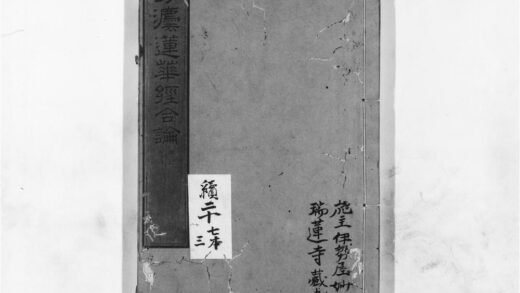 施主伊勢屋妙
瑞蓮寺藏
續二十
七本
三
灋蓮華經合論